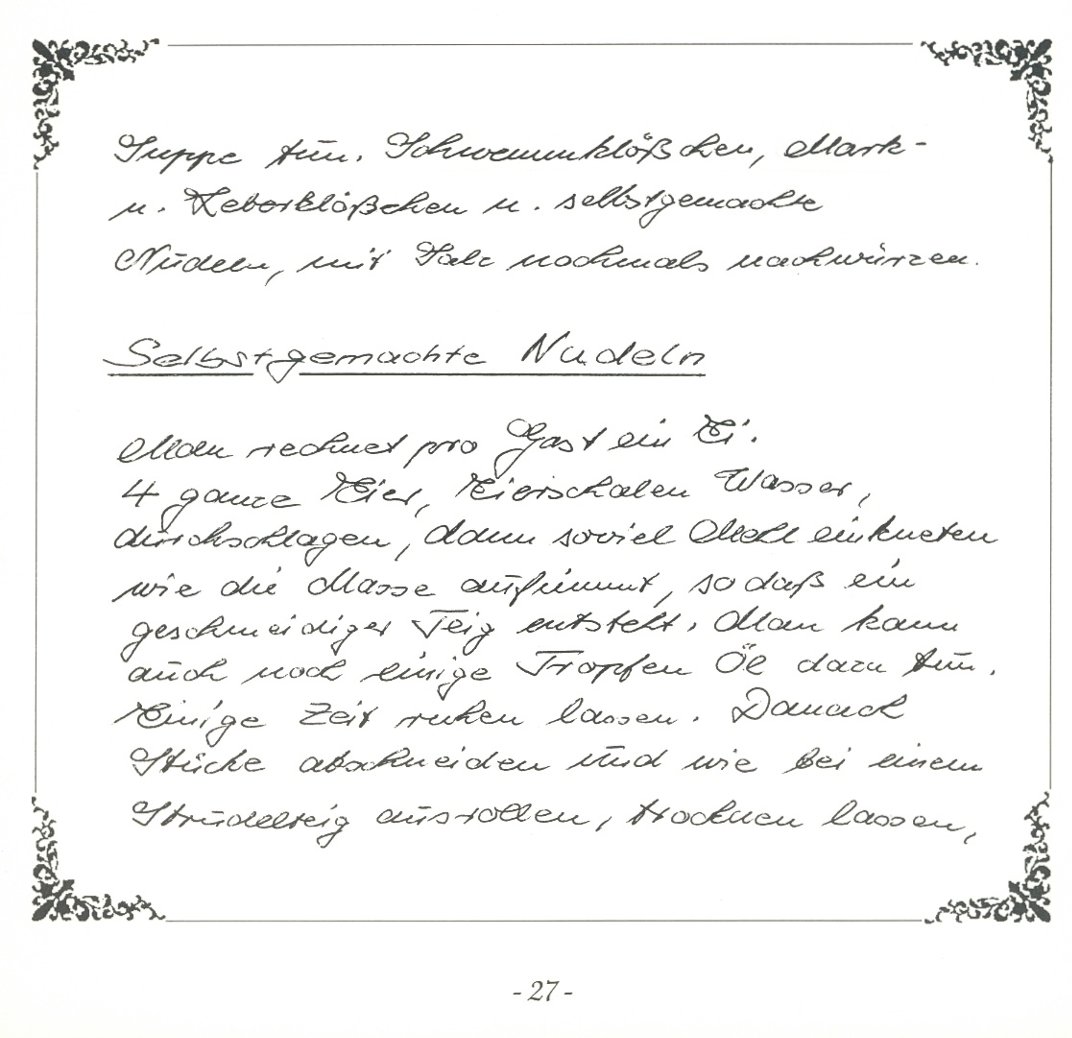 Suppe tun. Schwemmklößchen, Mark-
u. Leberklößchen u. selbstgemachte
Nudeln, mit Salz nochmals nachwürzen.
Selbstgemachte Nudeln
Man rechnet pro Gast ein Ei.
4 ganze Eier, Eierschalen Wasser,
durchschlagen, dann soviel Mehl einkneten
wie die Masse aufnimmt, so daß ein
geschmeidiger Teig entsteht. Man kann
auch noch einige Tropfen Öl dazu tun.
Einige Zeit ruhen lassen. Danach
Stücke abschneiden und wie bei einem
Strudelteig ausrollen, trocknen lassen,
- 27 -